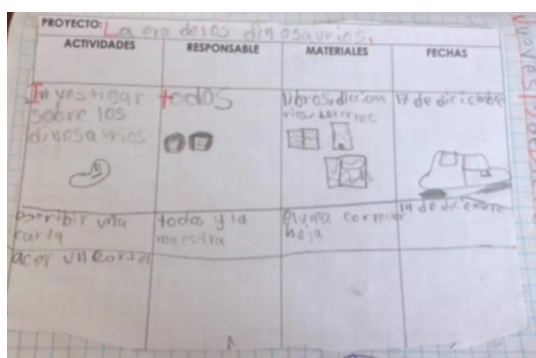 PROYECTO: La era de los dinosaurios.
ACTIVIDADES RESPONSABLE MATERIALES FECHAS
Investigar
sobre los
dinosaurios
todos
libros, dicciona
rios, internet
17 de diciembre
escribir una
carta
todos y la
maestra
pluma corrector
hoja
de diciembre
acer un cartel